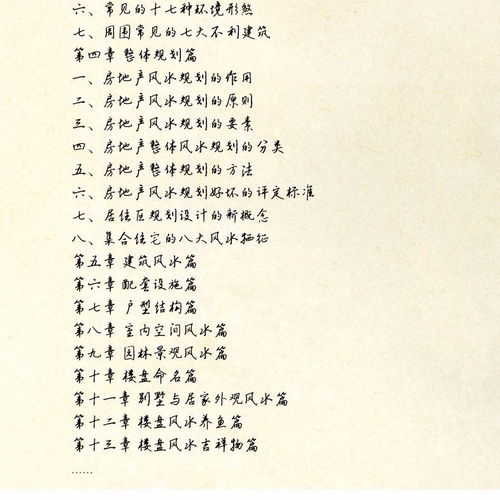 六、常见的十七种环境形煞
七、周围常见的七大不利建筑
第四章 整体规划篇
一、房地产风水规划的作用
二、房地产风水规划的原则
三、房地产风水规划的要素
四、房地产整体风水规划的分类
五、房地产整体规划的方法
六、房地产风水规划好坏的评定标准
七、居住区规划设计的新概念
八、集合住宅的八大风水特征
第五章 建筑风水篇
第六章 配套设施篇
第七章 户型结构篇
第八章 室内空间风水篇
第九章 园林景观风水篇
第十章 楼盘命名篇
第十一章 别墅与居家外观风水篇
第十二章 楼盘风水养鱼篇
第十三章 楼盘风水吉祥物篇
……